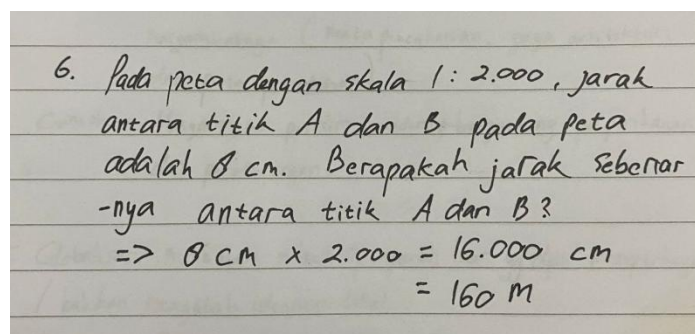 6. Pada peta dengan skala 1 : 2.000, jarak
antara titik A dan B pada peta
adalah 8 cm. Berapakah jarak sebenar
-nya antara titik A dan B?
=> 8 cm x 2.000 = 16.000 cm
= 160 m